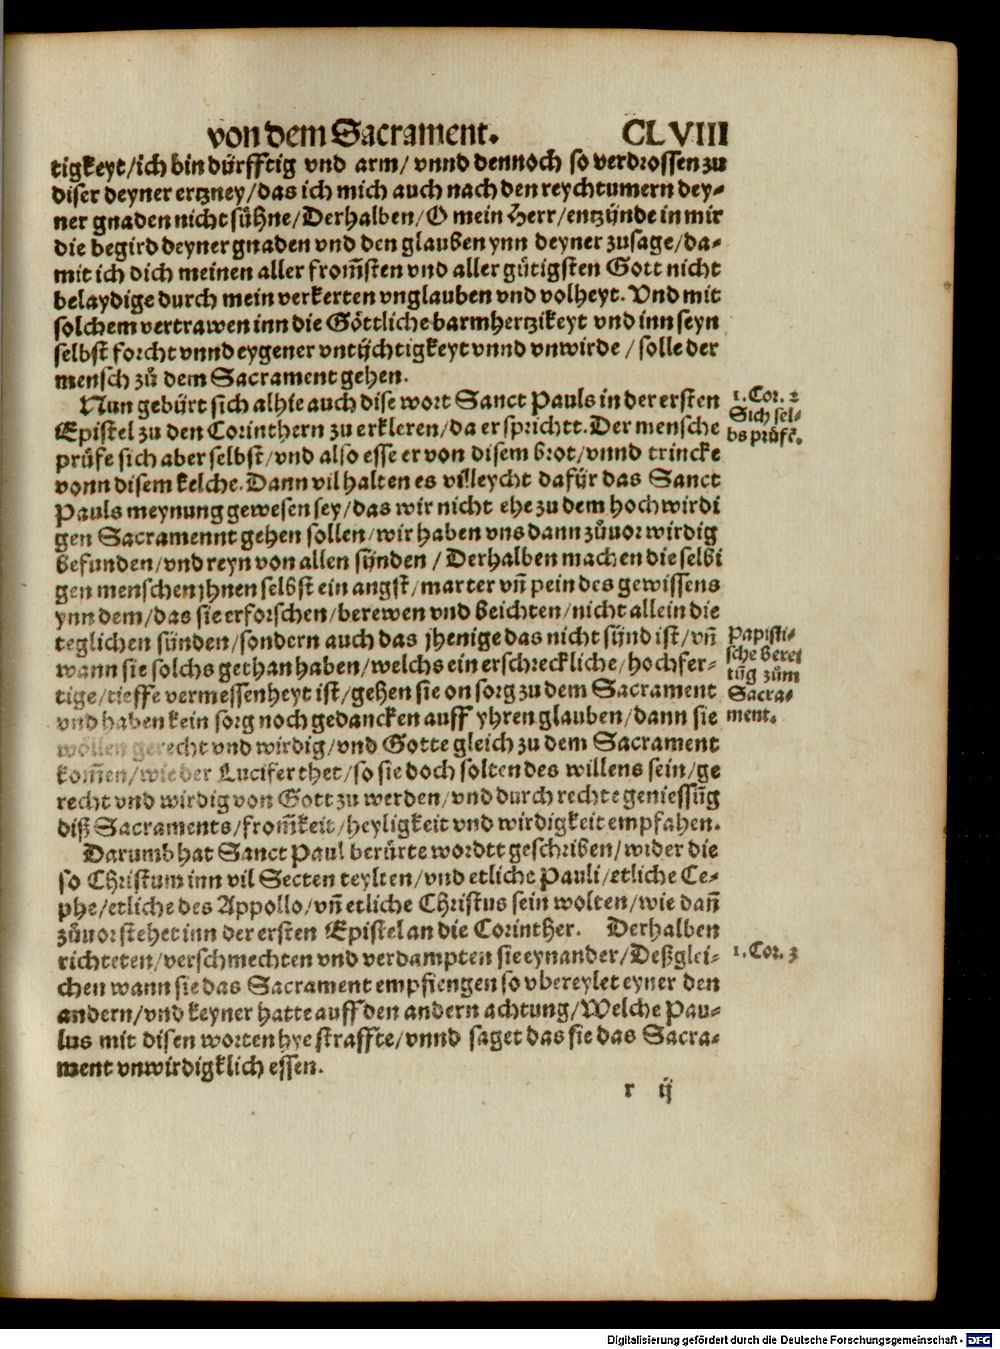 von dem Sacrament. CLVIII
tigkeyt/ich bin dürfftig vnd arm/ vnnd dennoch so verdrossen zu
diser deyner ertzney/das ich mich auch nach den reychtumern dey-
ner gnaden nicht sühne/Derhalben/O mein Herr/entzijnde in mir
die begird deyner gnaden vnd den glauben ynn deyner zusage/da-
mit ich dich meinen aller from̃sten vnd aller gütigsten Gott nicht
belaydige durch mein verkerten vnglauben vnd volheyt. Vnd mit
solchem vertrawen inn die Göttliche barmhertzikeyt vnd inn seyn
selbst forcht vnnd eygener vntijchtigkeyt vnnd vnwirde / solle der
mensch zů dem Sacrament gehen.
Nun gebürt sich alhie auch dise wort Sanct Pauls in der ersten
Epistel zu den Corinthern zu erkleren/da er sprichtt. Der mensche
prüfe sich aber selbst/vnd also esse er von disem brot/vnnd trincke
vonn disem kelche. Dann vil halten es villeycht dafijr das Sanct
Pauls meynung gewesen sey/das wir nicht ehe zu dem hochwirdi
gen Sacramennt gehen sollen/wir haben vns dann zůuor wirdig
befunden/vnd reyn von allen sijnden / Derhalben machen die selbi
gen menschen jhnen selbst ein angst/marter vñ pein des gewissens
ynn dem/das sie erforschen/berewen vnd beichten/nicht allein die
teglichen sünden/sondern auch das jhenige das nicht sijnd ist/vñ
wann sie solchs gethan haben/welchs ein erschreckliche/hochfer-
tige/tieffe vermessenheyt ist/gehen sie on sorg zu dem Sacrament
vnd haben kein sorg noch gedancken auff yhren glauben/dann sie
wöllen gerecht vnd wirdig/vnd Gotte gleich zu dem Sacrament
kom̃en/wie der Lucifer thet/so sie doch solten des willens sein/ge
recht vnd wirdig von Gott zu werden/vnd durch rechte geniessũg
diß Sacraments/from̃keit/heyligkeit vnd wirdigkeit empfahen.
Darumb hat Sanct Paul berürte wordtt geschriben/wider die
so Christum inn vil Secten teylten/vnd etliche Pauli/etliche Ce-
phe/etliche des Appollo/vñ etliche Christus sein wolten/wie dañ
zůuor stehet inn der ersten Epistel an die Corinther. Derhalben
richteten/verschmechten vnd verdampten sie eynander/Deßglei-
chen wann sie das Sacrament empfiengen so vbereylet eyner den
andern/vnd keyner hatte auff den andern achtung/Welche Pau-
lus mit disen worten hye straffte/vnnd saget das sie das Sacra-
ment vnwirdigklich essen.
r ij
1. Cor. 2
Sich sel-
bs prüfe.
Papisti-
sche berei
tũg zům
Sacra-
ment.
1. Cor. 3
Digitalisierung gefördert durch die Deutsche Forschungsgemeinschaft - DFG